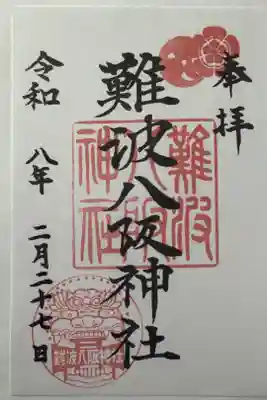 奉拝
難波八阪神社
難波八阪神社
令和八年二月二十七日
難波八阪神社